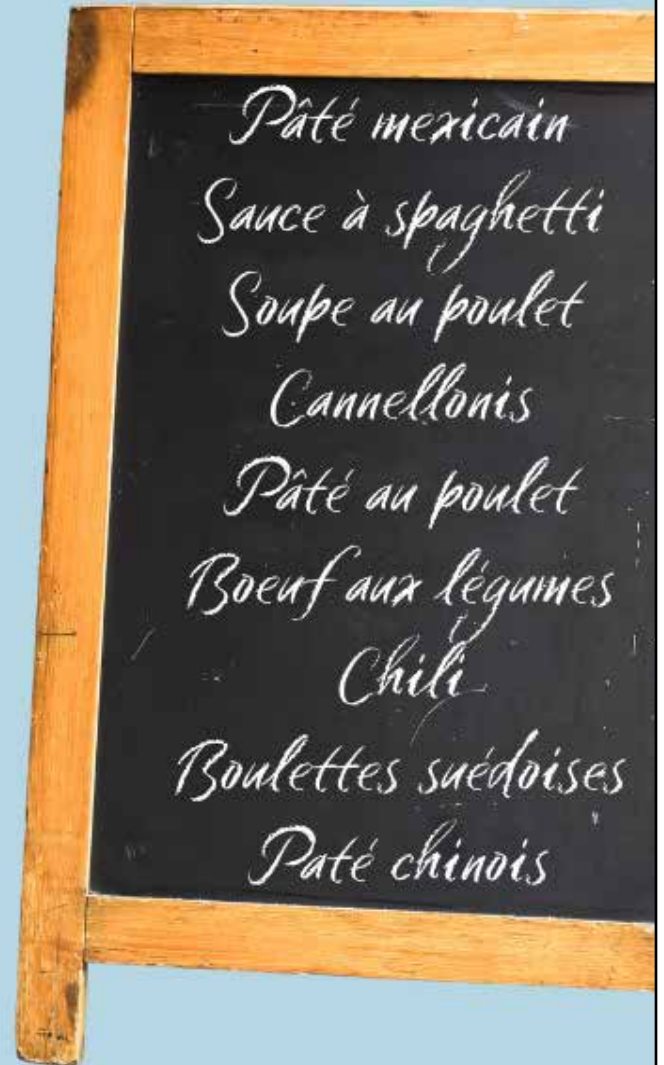 Pâté mexicain
Sauce à spaghetti
Soupe au poulet
Cannellonis
Pâté au poulet
Boeuf aux légumes
Chili
Boulettes suédoises
Paté chinois